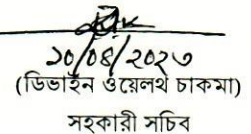 ১০/০৪/২০২৩
(ডিভাইন ওয়েলথ চাকমা)
সহকারী সচিব